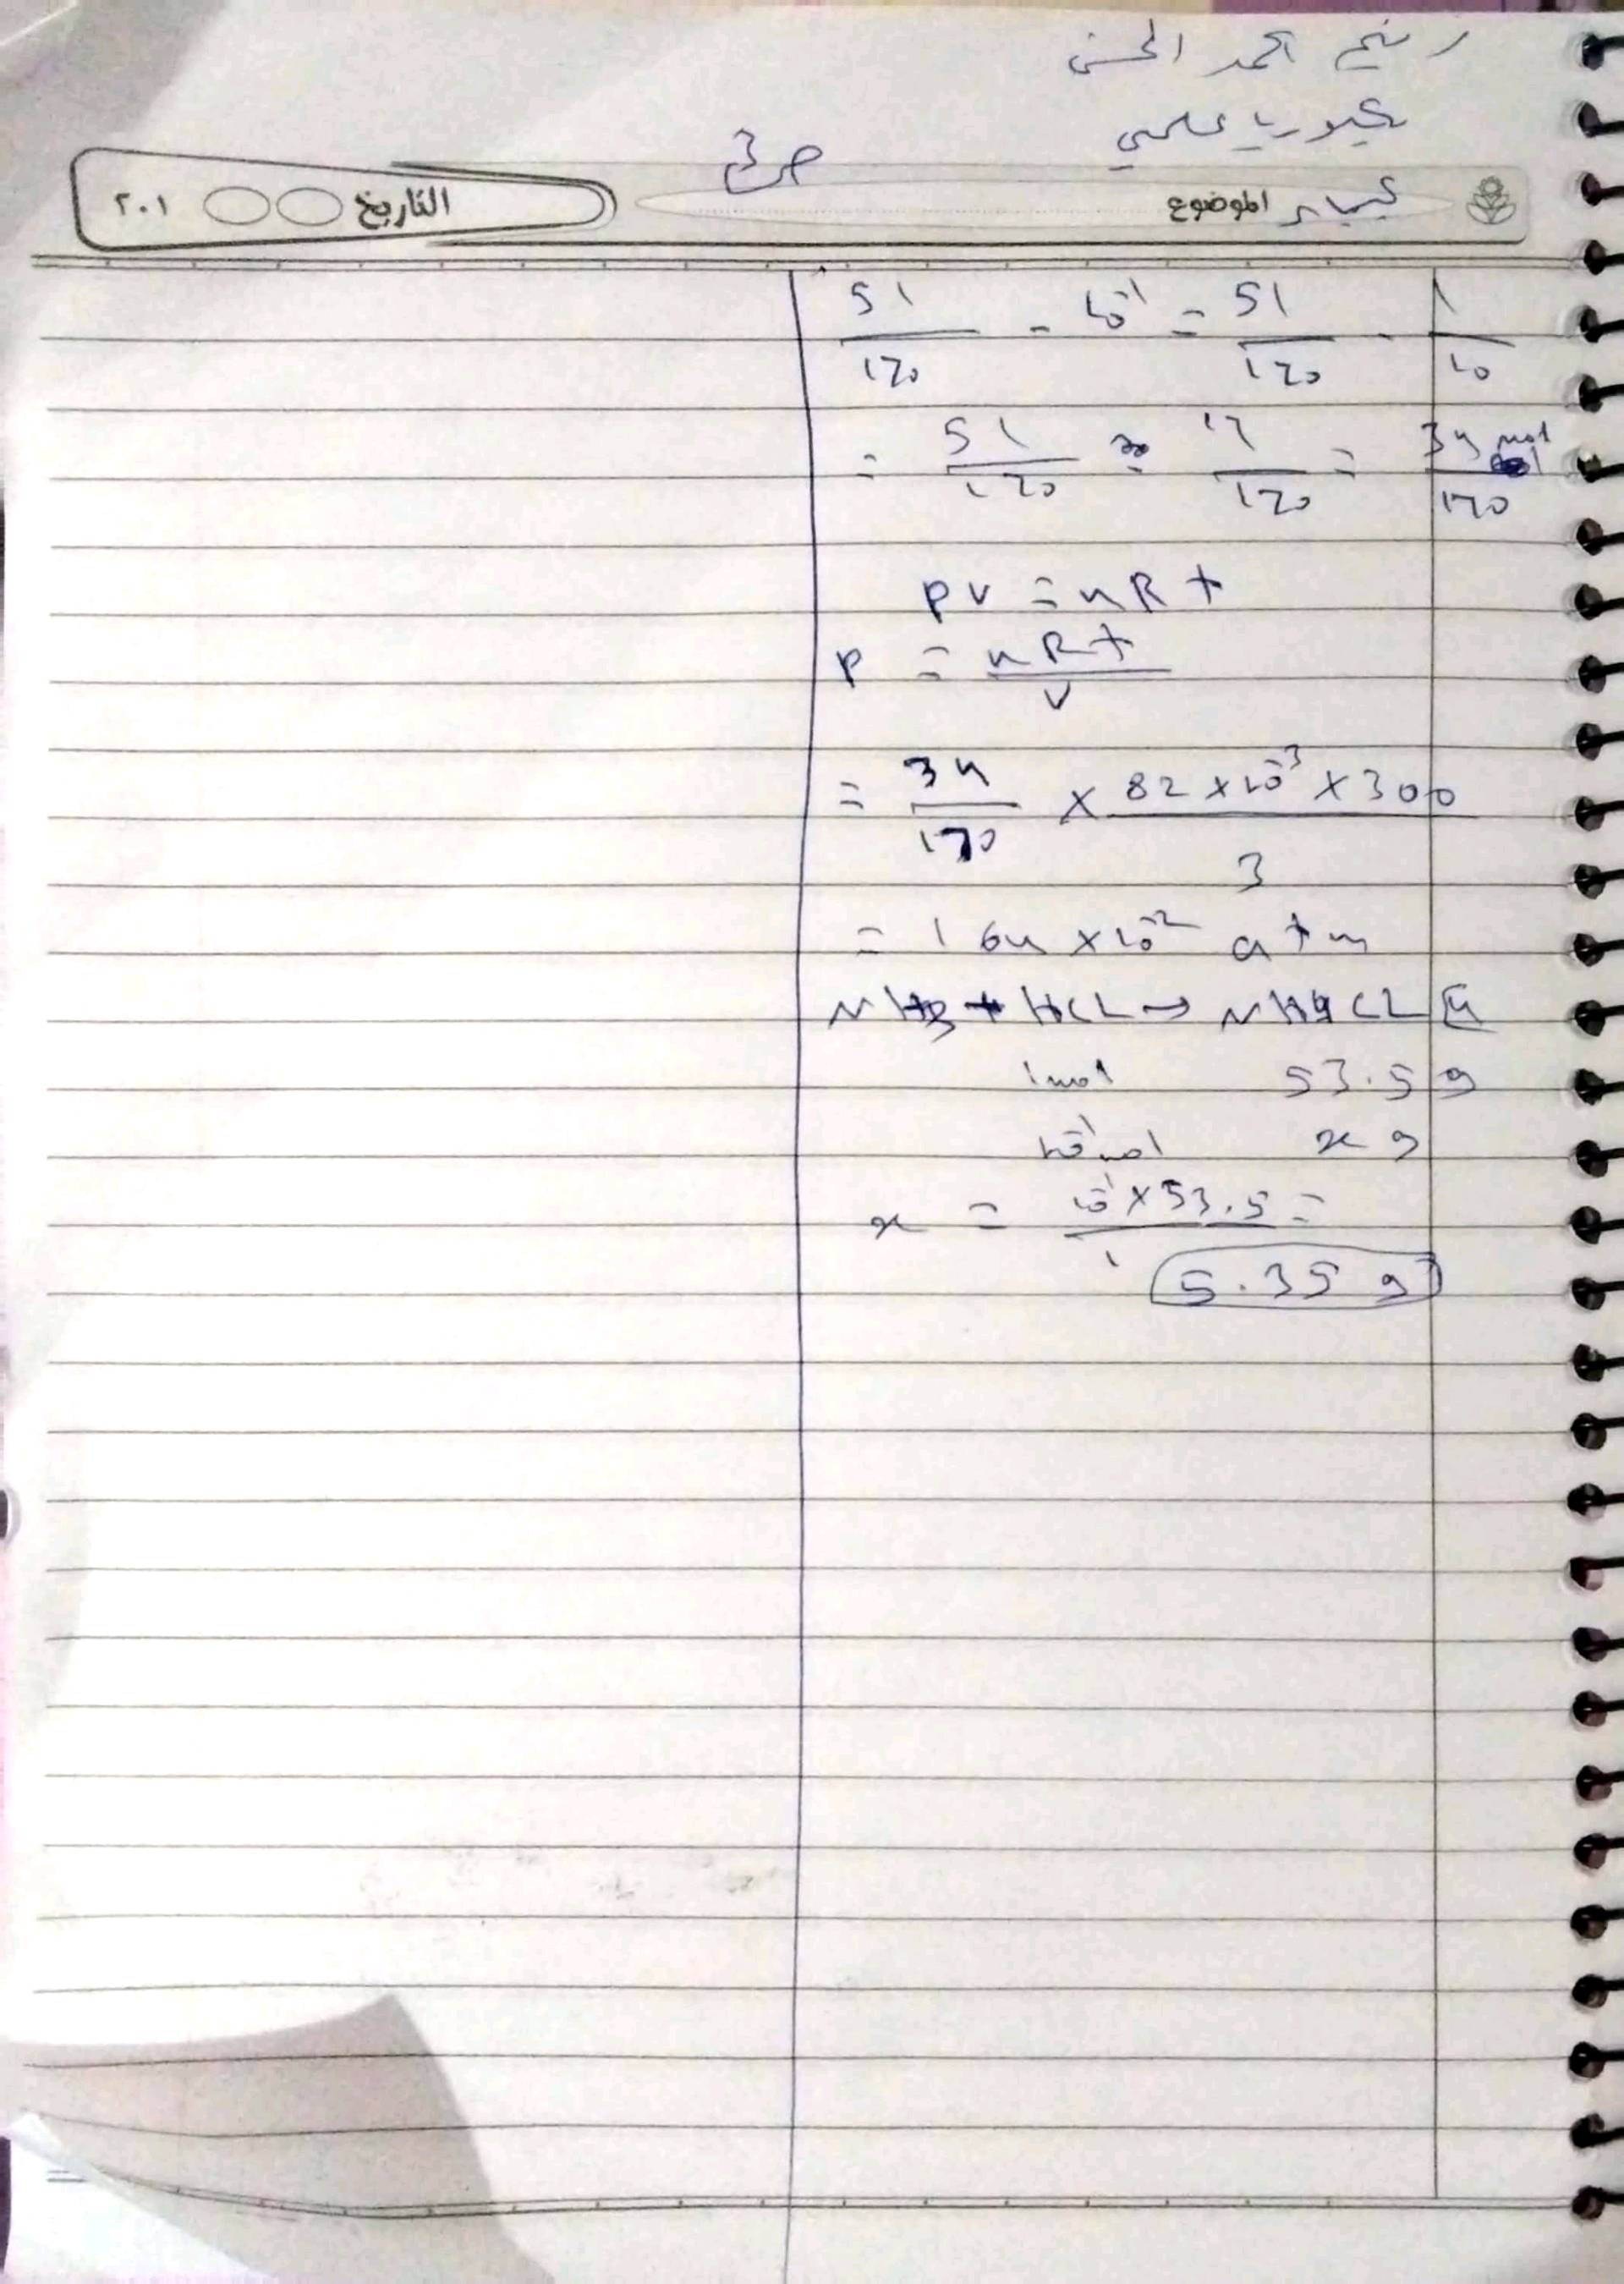 رنيم احمد الحسن
بكلوريا علمي
ص3
الموضوع كيمياء
التاريخ ٢٠١
51/170 - 10⁻¹ = 51/170 - 1/10
= 51/170 - 17/170 = 34/170 mol
PV = nRt
P = nRt/V
= 34/170 × 82×10⁻³×300/3
= 164×10⁻² atm
NH3 + HCL → NH4CL [4
1mol 53.5 g
10⁻¹mol x g
x = 10⁻¹×53.5/1 =
5.35 g